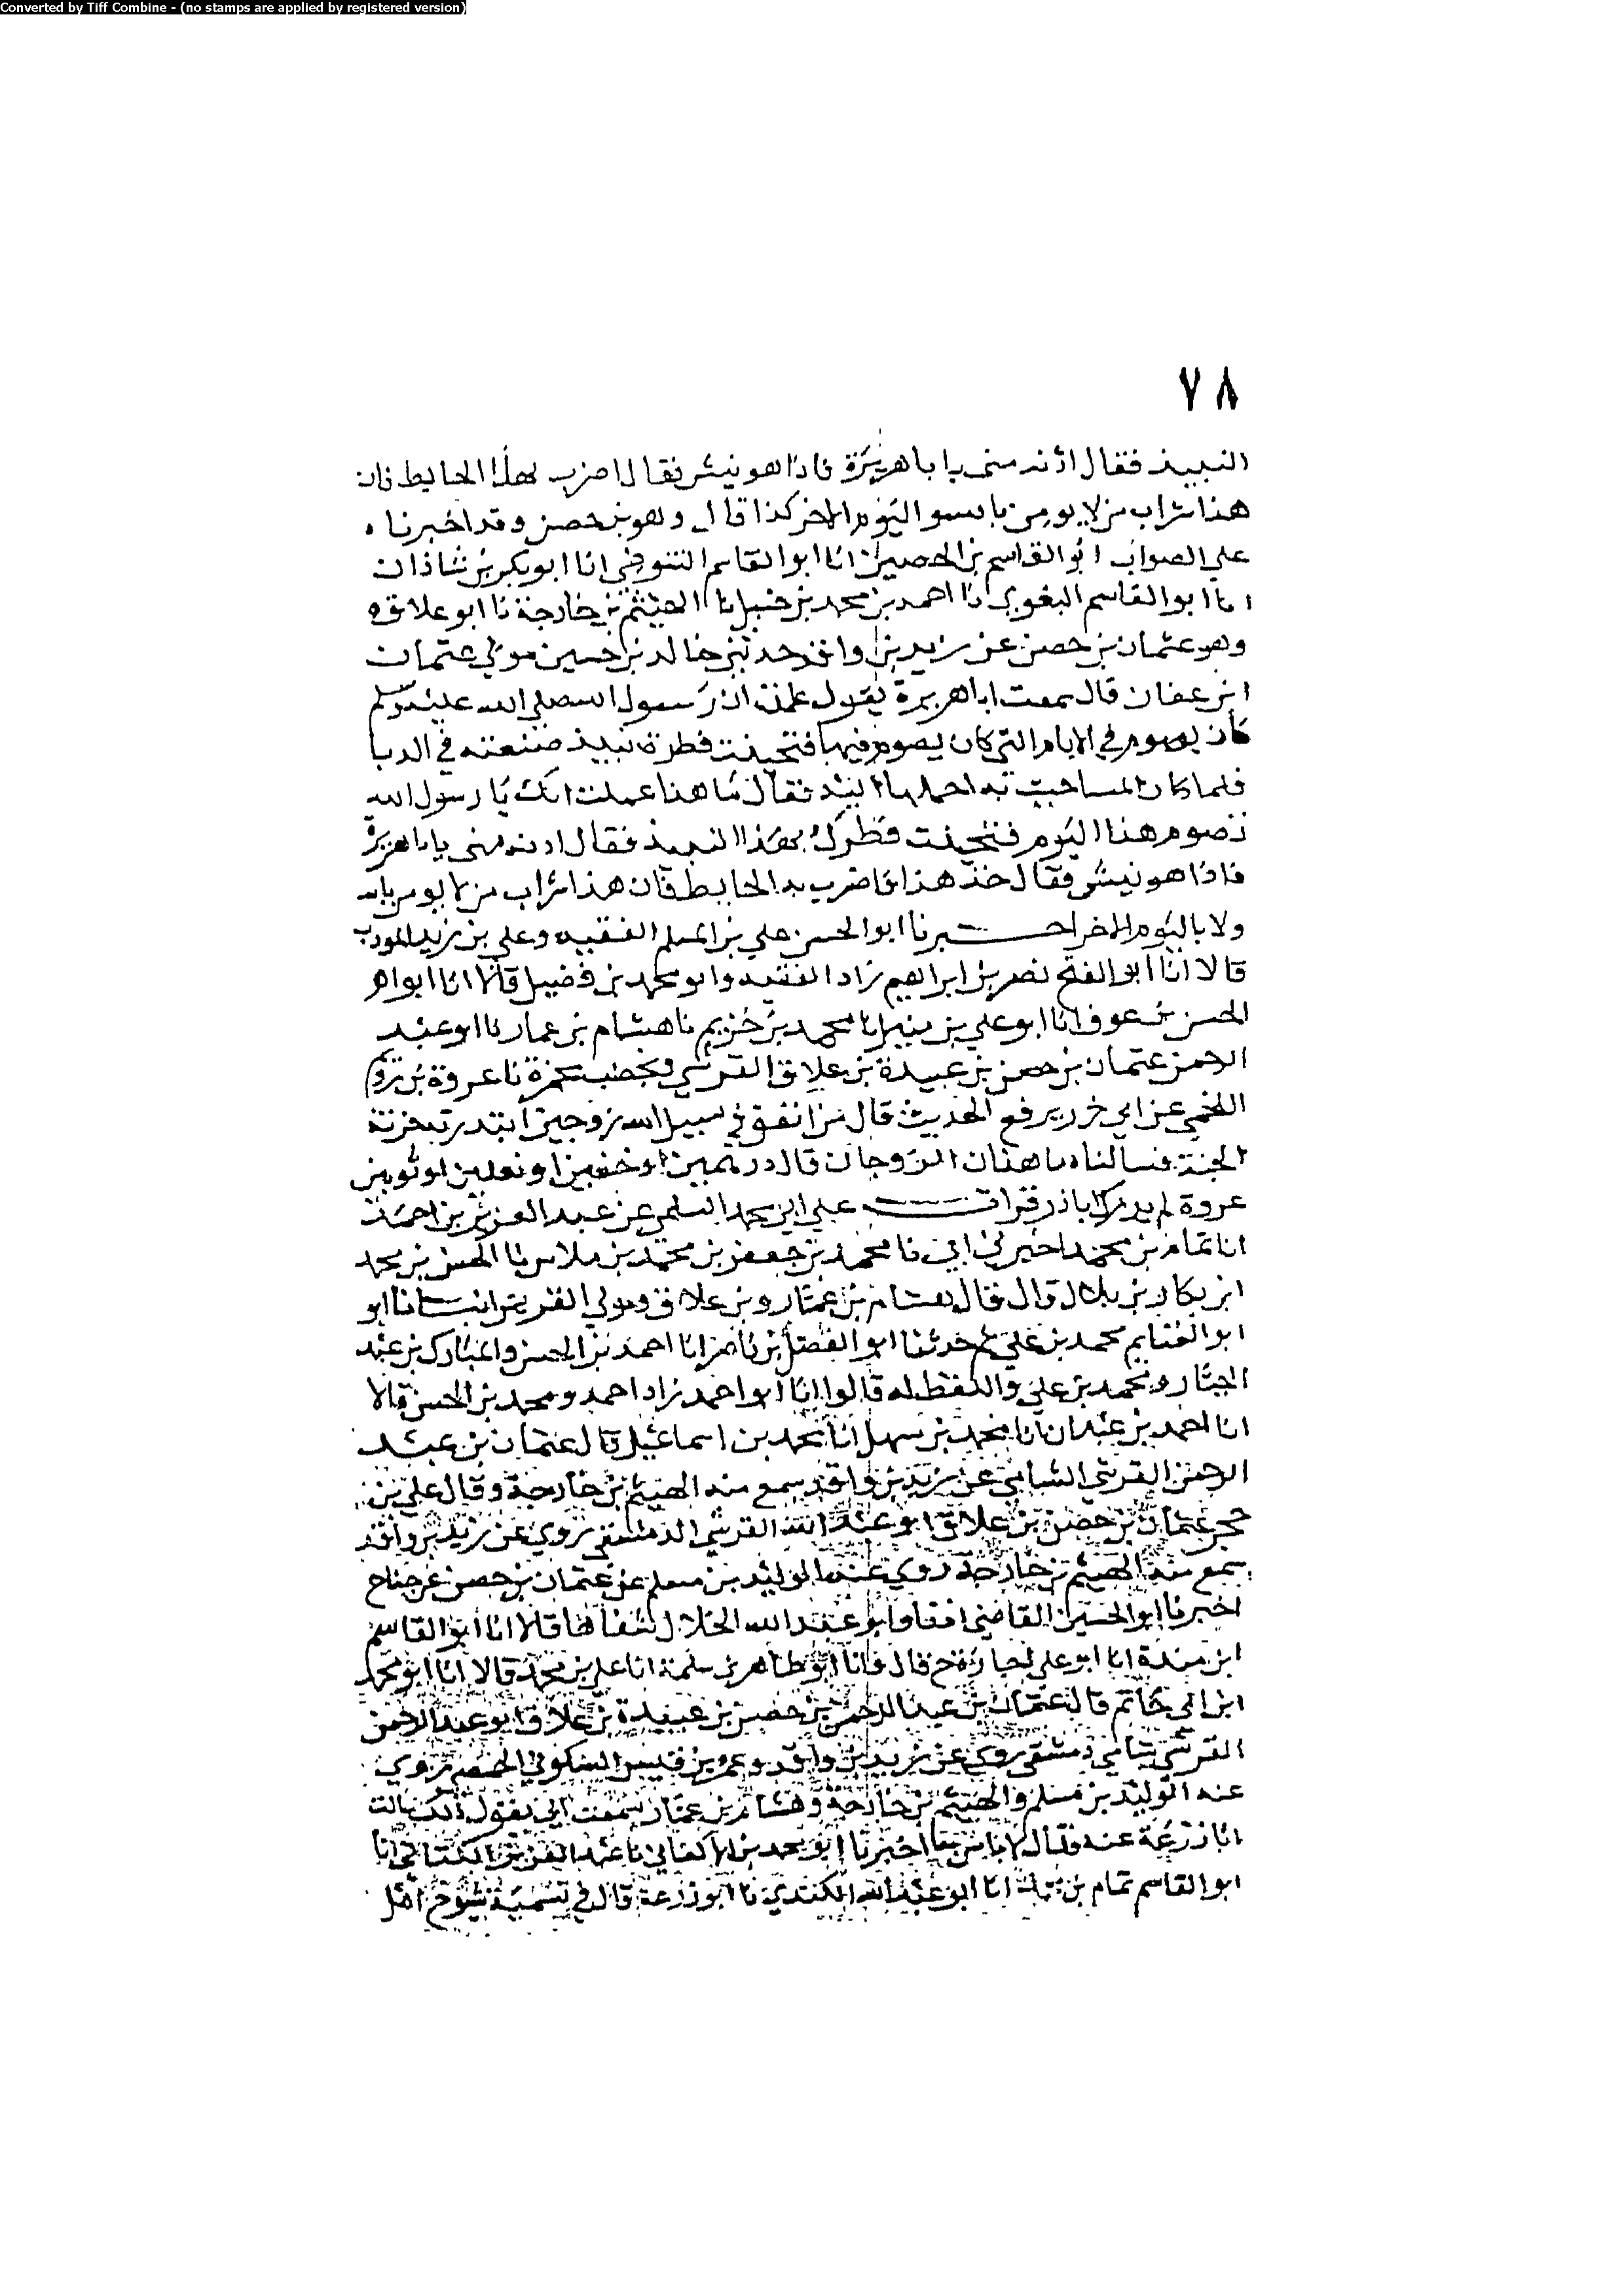 Converted by Tiff Combine - (no stamps are applied by registered version)
٧٨
النبيذ فقال ادنه منى يا باهريرة فاذا هو ينش فقال اضرب بهذا الحايط فان
هذا شراب من لا يومن بالله واليوم الاخر كذا قال وهو بن حصن وقد اخبرناه
على الصواب ابو القاسم بن الحصين انا ابو القاسم التنوخي انا ابو بكر بن شاذان
انا ابو القاسم البغوي نا احمد بن محمد بن حنبل نا الهيثم بن خارجة نا ابو علاقه
وهو عثمان بن حصن عن زيد بن واقد حدثني خالد بن حسين مولى عثمان
ابن عفان قال سمعت ابا هريرة يقول علمت ان رسول الله صلى الله عليه وسلم
كان يصوم في الايام التي كان يصوم فيها فتحينت فطره بنبيذ صنعته في الدبا
فلما كان المسا جيته احملها اليه فقال ما هذا علمت انك يا رسول الله
تصوم هذا اليوم فتحينت فطرك بهذا النبيذ فقال ادنه منى يا باهريرة
فاذا هو ينش فقال خذ هذا فاضرب به الحايط فان هذا شراب من لا يومن بالله
ولا باليوم الاخر اخبرنا ابو الحسن علي بن المسلم الفقيه وعلي بن زيد المودب
قالا انا ابو الفتح نصر بن ابراهيم زاد الفقيه وابو محمد بن فضيل قالا انا ابو
الحسن بن عوف انا ابو علي بن منير انا محمد بن خزيم نا هشام بن عمار نا ابو عبد
الرحمن عثمان بن حصن بن عبيدة بن علاق القرشي نا عروة بن رويم
اللخمي عن ابي ذر يرفع الحديث قال من انفق في سبيل الله زوجين ابتدرته خزنة
الجنة فسالناه ما هذان الزوجان قال درهمين او خفين او نعلين او ثوبين
عروة لم يدرك اباذر قرات على ابي محمد السلمي عن عبد العزيز بن احمد
انا تمام بن محمد اخبرني ابي نا محمد بن جعفر بن محمد بن ملاس نا الحسن بن محمد
ابن بكار بن بلال قال قال هشام بن عمار وبن علاق مولى القريش انبانا ابو
ابو الغنايم محمد بن علي ثم حدثنا ابو الفضل بن ناصر انا احمد بن الحسن والمبارك بن عبد
الجبار ومحمد بن علي واللفظ له قالوا انا ابو احمد زاد احمد ومحمد بن الحسن قالا
انا احمد بن عبدان انا محمد بن سهل انا محمد بن اسماعيل قال عثمان بن عبد
الرحمن القرشي الشامي عن زيد بن واقد سمع منه الهيثم بن خارجة وقال علي بن
حجر عثمان بن حصن بن علاق ابو عبد الله القرشي الدمشقي روى عن زيد بن واقد
سمع منه الهيثم بن خارجة روى عنه الوليد بن مسلم عن عثمان بن حصن عن جناح
اخبرنا ابو الحسين القاضي اذنا وابو عبد الله الخلال شفاها قالا انا ابو القاسم
ابن مندة انا ابو علي اجازة ح قال وانا ابو طاهر بن سلمة انا علي بن محمد قالا انا ابو محمد
ابن ابي حاتم قال عثمان بن عبد الرحمن بن حصن بن عبيدة بن علاق ابو عبد الرحمن
القرشي شامي دمشقي روى عن زيد بن واقد وعمرو بن قيس السكوني الحمصي روى
عنه الوليد بن مسلم والهيثم بن خارجة وهشام بن عمار سمعت ابي يقول ذلك سالت
ابا زرعة عنه فقال لا باس به اخبرنا ابو محمد بن الاكفاني نا عبد العزيز الكتاني انا
ابو القاسم تمام بن محمد انا ابو عبد الله الكندي نا ابو زرعة قال في تسمية شيوخ اهل